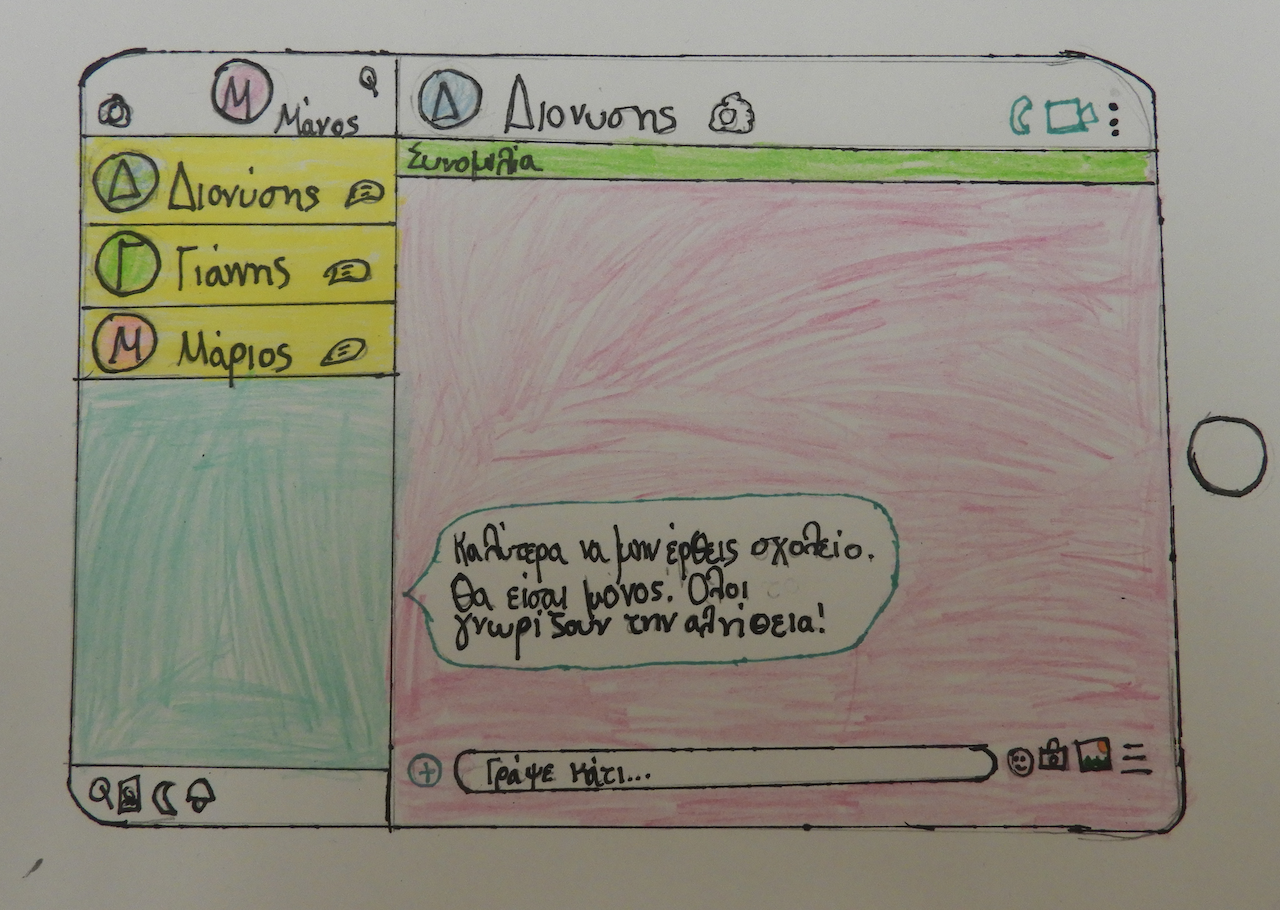 Μ
Μάνος
Δ
Διονυσης
Συνομιλία
Δ
Διονύσης
Γ
Γιάννης
Μ
Μάριος
Καλύτερα να μην έρθεις σχολείο.
Θα είσαι μόνος. Όλοι
γνωρίζουν την αλήθεια!
Γράψε κάτι...